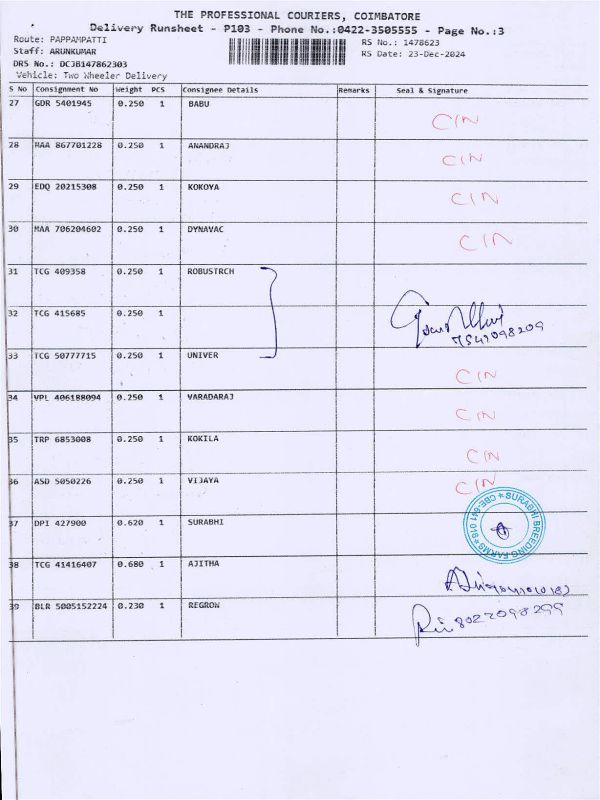 THE PROFESSIONAL COURIERS, COIMBATORE
Delivery Runsheet - P103 - Phone No.:0422-3505555 - Page No.:3
Route: PAPPAMPATTI
RS No.: 1478623
Staff: ARUNKUMAR
RS Date: 23-Dec-2024
DRS No.: DCJB147862303
Vehicle: Two Wheeler Delivery
S No Consignment No Weight PCS Consignee Details Remarks Seal & Signature
27 GDR 5401945 0.250 1 BABU CIN
28 MAA 867701228 0.250 1 ANANDRAJ CIN
29 EDQ 20215308 0.250 1 KOKOYA CIN
30 MAA 706204602 0.250 1 DYNAVAC CIN
31 TCG 409358 0.250 1 ROBUSTRCH
32 TCG 415685 0.250 1
33 TCG 50777715 0.250 1 UNIVER CIN
34 VPL 406188094 0.250 1 VARADARAJ CIN
35 TRP 6853008 0.250 1 KOKILA CIN
36 ASD 5050226 0.250 1 VIJAYA CIN
37 DPI 427900 0.620 1 SURABHI SURABHI BREEDING FARMS CBE-641 019
38 TCG 41416407 0.680 1 AJITHA
39 BLR 5005152224 0.230 1 REGROW 8027098299